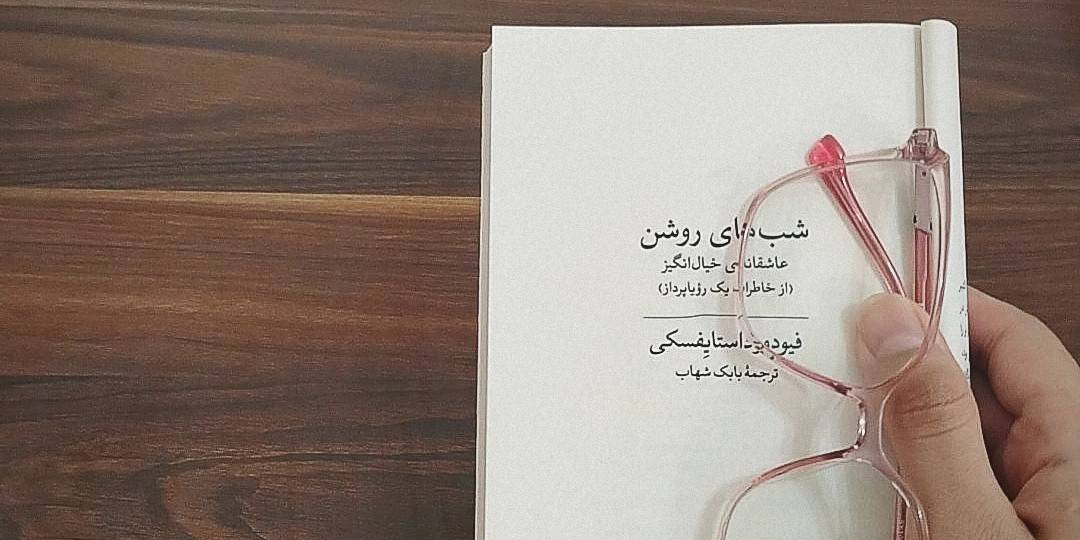 شب‌های روشن
عاشقانه‌ی خیال‌انگیز
(از خاطرات یک رؤیاپرداز)
فیودور داستایِفسکی
ترجمهٔ بابک شهاب